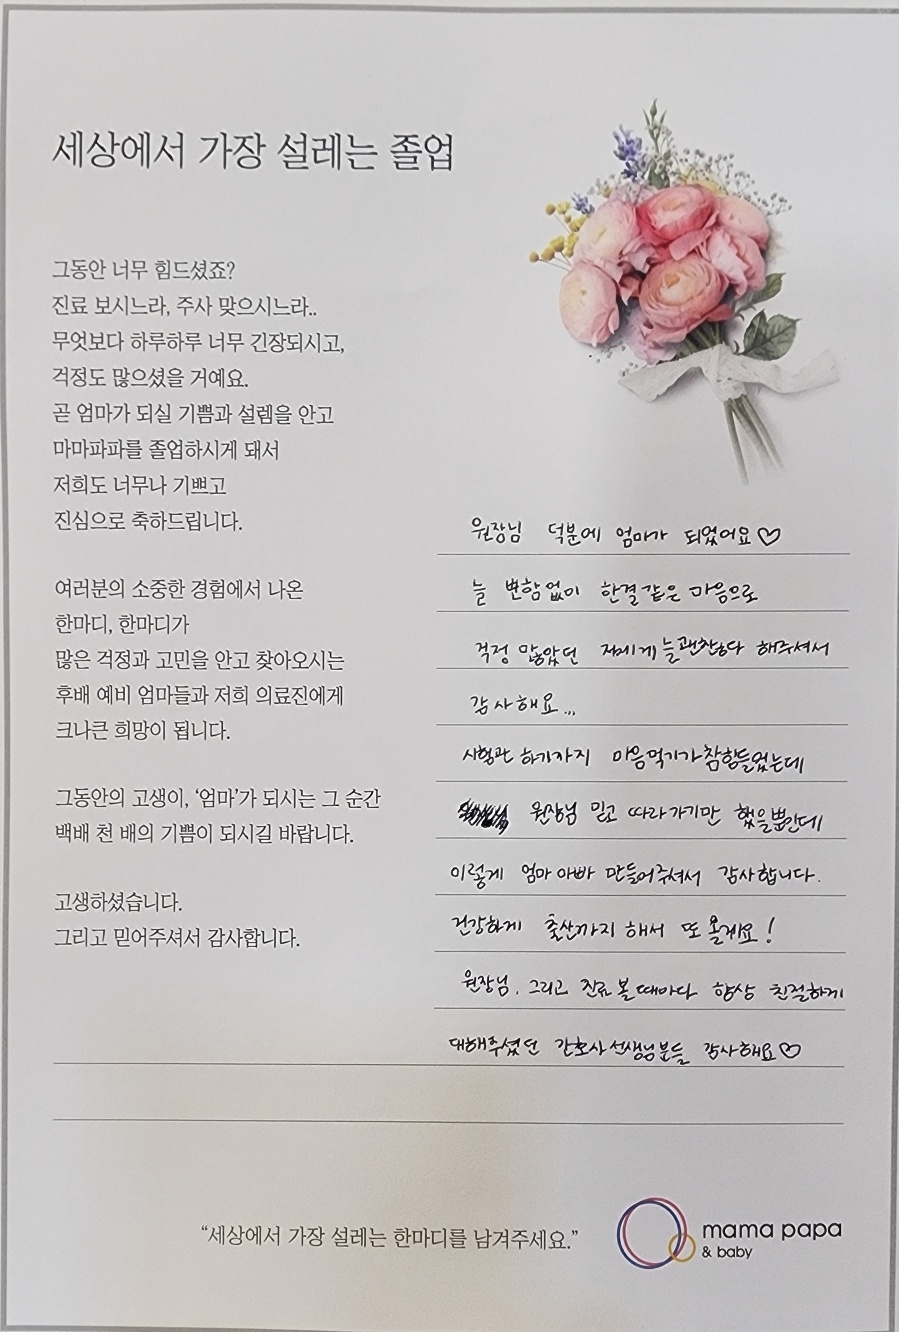 세상에서 가장 설레는 졸업
그동안 너무 힘드셨죠?
진료 보시느라, 주사 맞으시느라..
무엇보다 하루하루 너무 긴장되시고,
걱정도 많으셨을 거예요.
곧 엄마가 되실 기쁨과 설렘을 안고
마마파파를 졸업하시게 돼서
저희도 너무나 기쁘고
진심으로 축하드립니다.
여러분의 소중한 경험에서 나온
한마디, 한마디가
많은 걱정과 고민을 안고 찾아오시는
후배 예비 엄마들과 저희 의료진에게
크나큰 희망이 됩니다.
그동안의 고생이, ‘엄마’가 되시는 그 순간
백배 천 배의 기쁨이 되시길 바랍니다.
고생하셨습니다.
그리고 믿어주셔서 감사합니다.
원장님 덕분에 엄마가 되었어요♡
늘 변함없이 한결같은 마음으로
걱정 많았던 저에게 늘괜찮다 해주셔서
감사해요...
시험관 하기까지 마음먹기가참힘들었는데
원장님 믿고 따라가기만 했을뿐인데
이렇게 엄마아빠 만들어주셔서 감사합니다.
건강하게 출산까지 해서 또올게요!
원장님. 그리고 진료볼때마다 항상 친절하게
대해주셨던 간호사선생님분들 감사해요♡
“세상에서 가장 설레는 한마디를 남겨주세요.”
mama papa
& baby